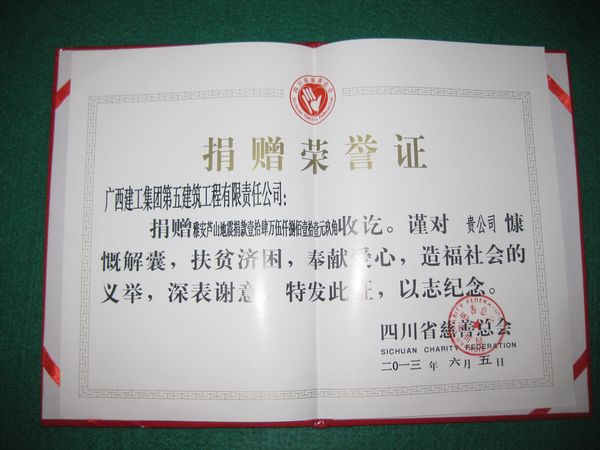 捐赠荣誉证
广西建工集团第五建筑工程有限责任公司：
捐赠雅安芦山地震捐款壹拾肆万伍仟捌佰壹拾壹元玖角收讫。谨对 贵公司 慷
慨解囊，扶贫济困，奉献爱心，造福社会的
义举，深表谢意，特发此证，以志纪念。
四川省慈善总会
SICHUAN CHARITY FEDERATION
二0一三年 六 月 五 日